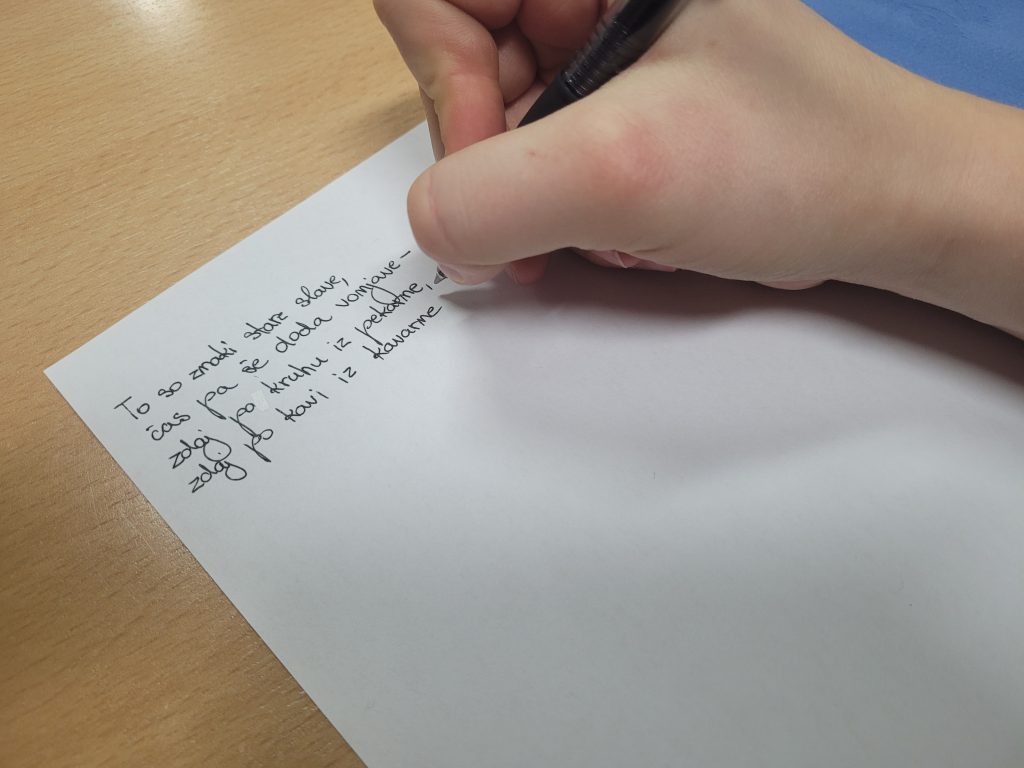 To so znaki stare slave,
čas pa še doda vonjave -
zdaj po kruhu iz pekarne,
zdaj po kavi iz kavarne